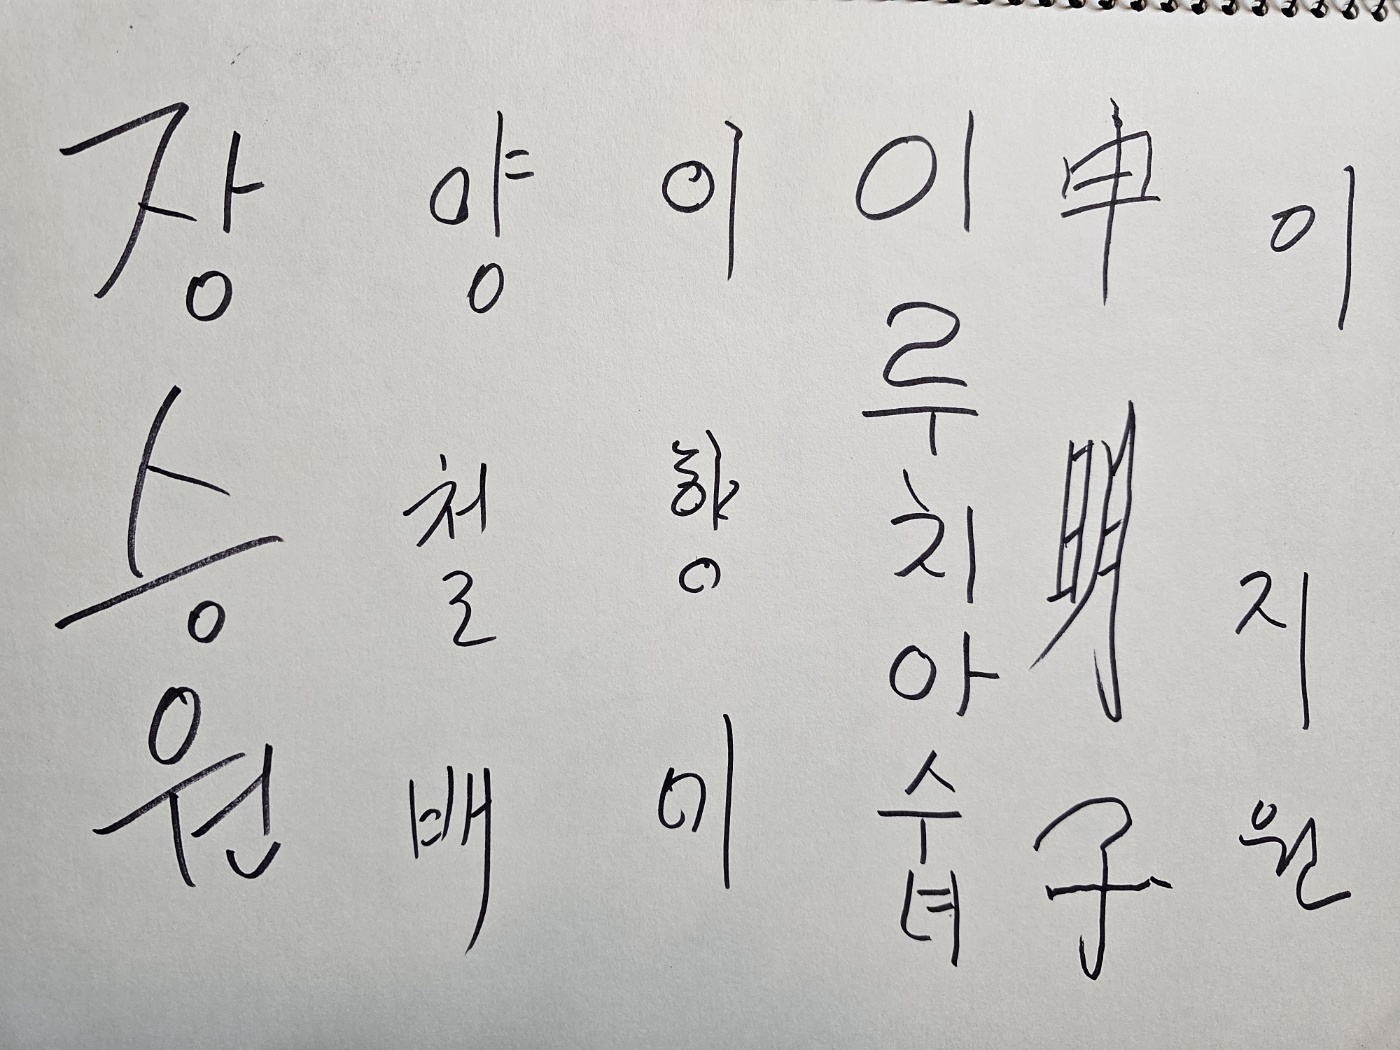 장승원
양철배
이향이
이루치아수녀
申明子
이지원